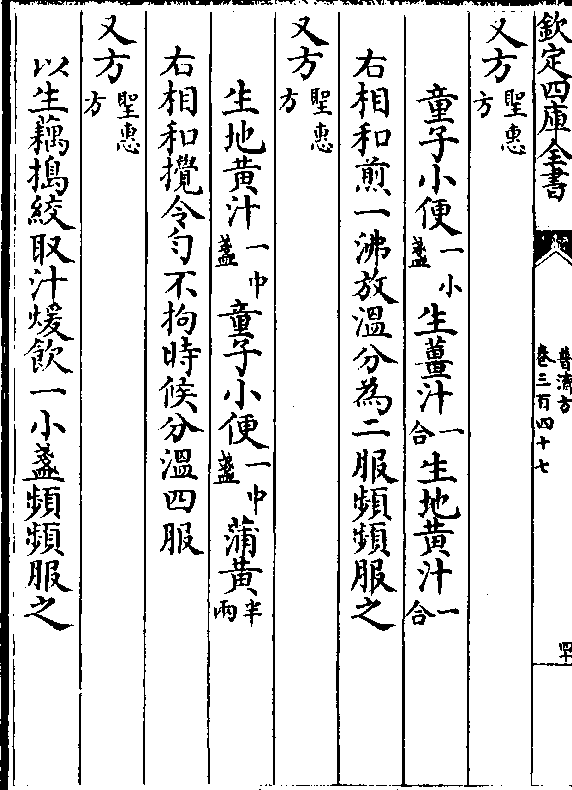 欽定四庫全書
普濟方
卷三百四十七
四十
又方聖惠方
童子小便一小盞生薑汁一合生地黃汁一合
右相和煎一沸放溫分為二服頻頻服之
又方聖惠方
生地黃汁一中盞童子小便一中盞蒲黃半兩
右相和攪令勻不拘時候分溫四服
又方聖惠方
以生藕搗絞取汁煖飲一小盞頻頻服之